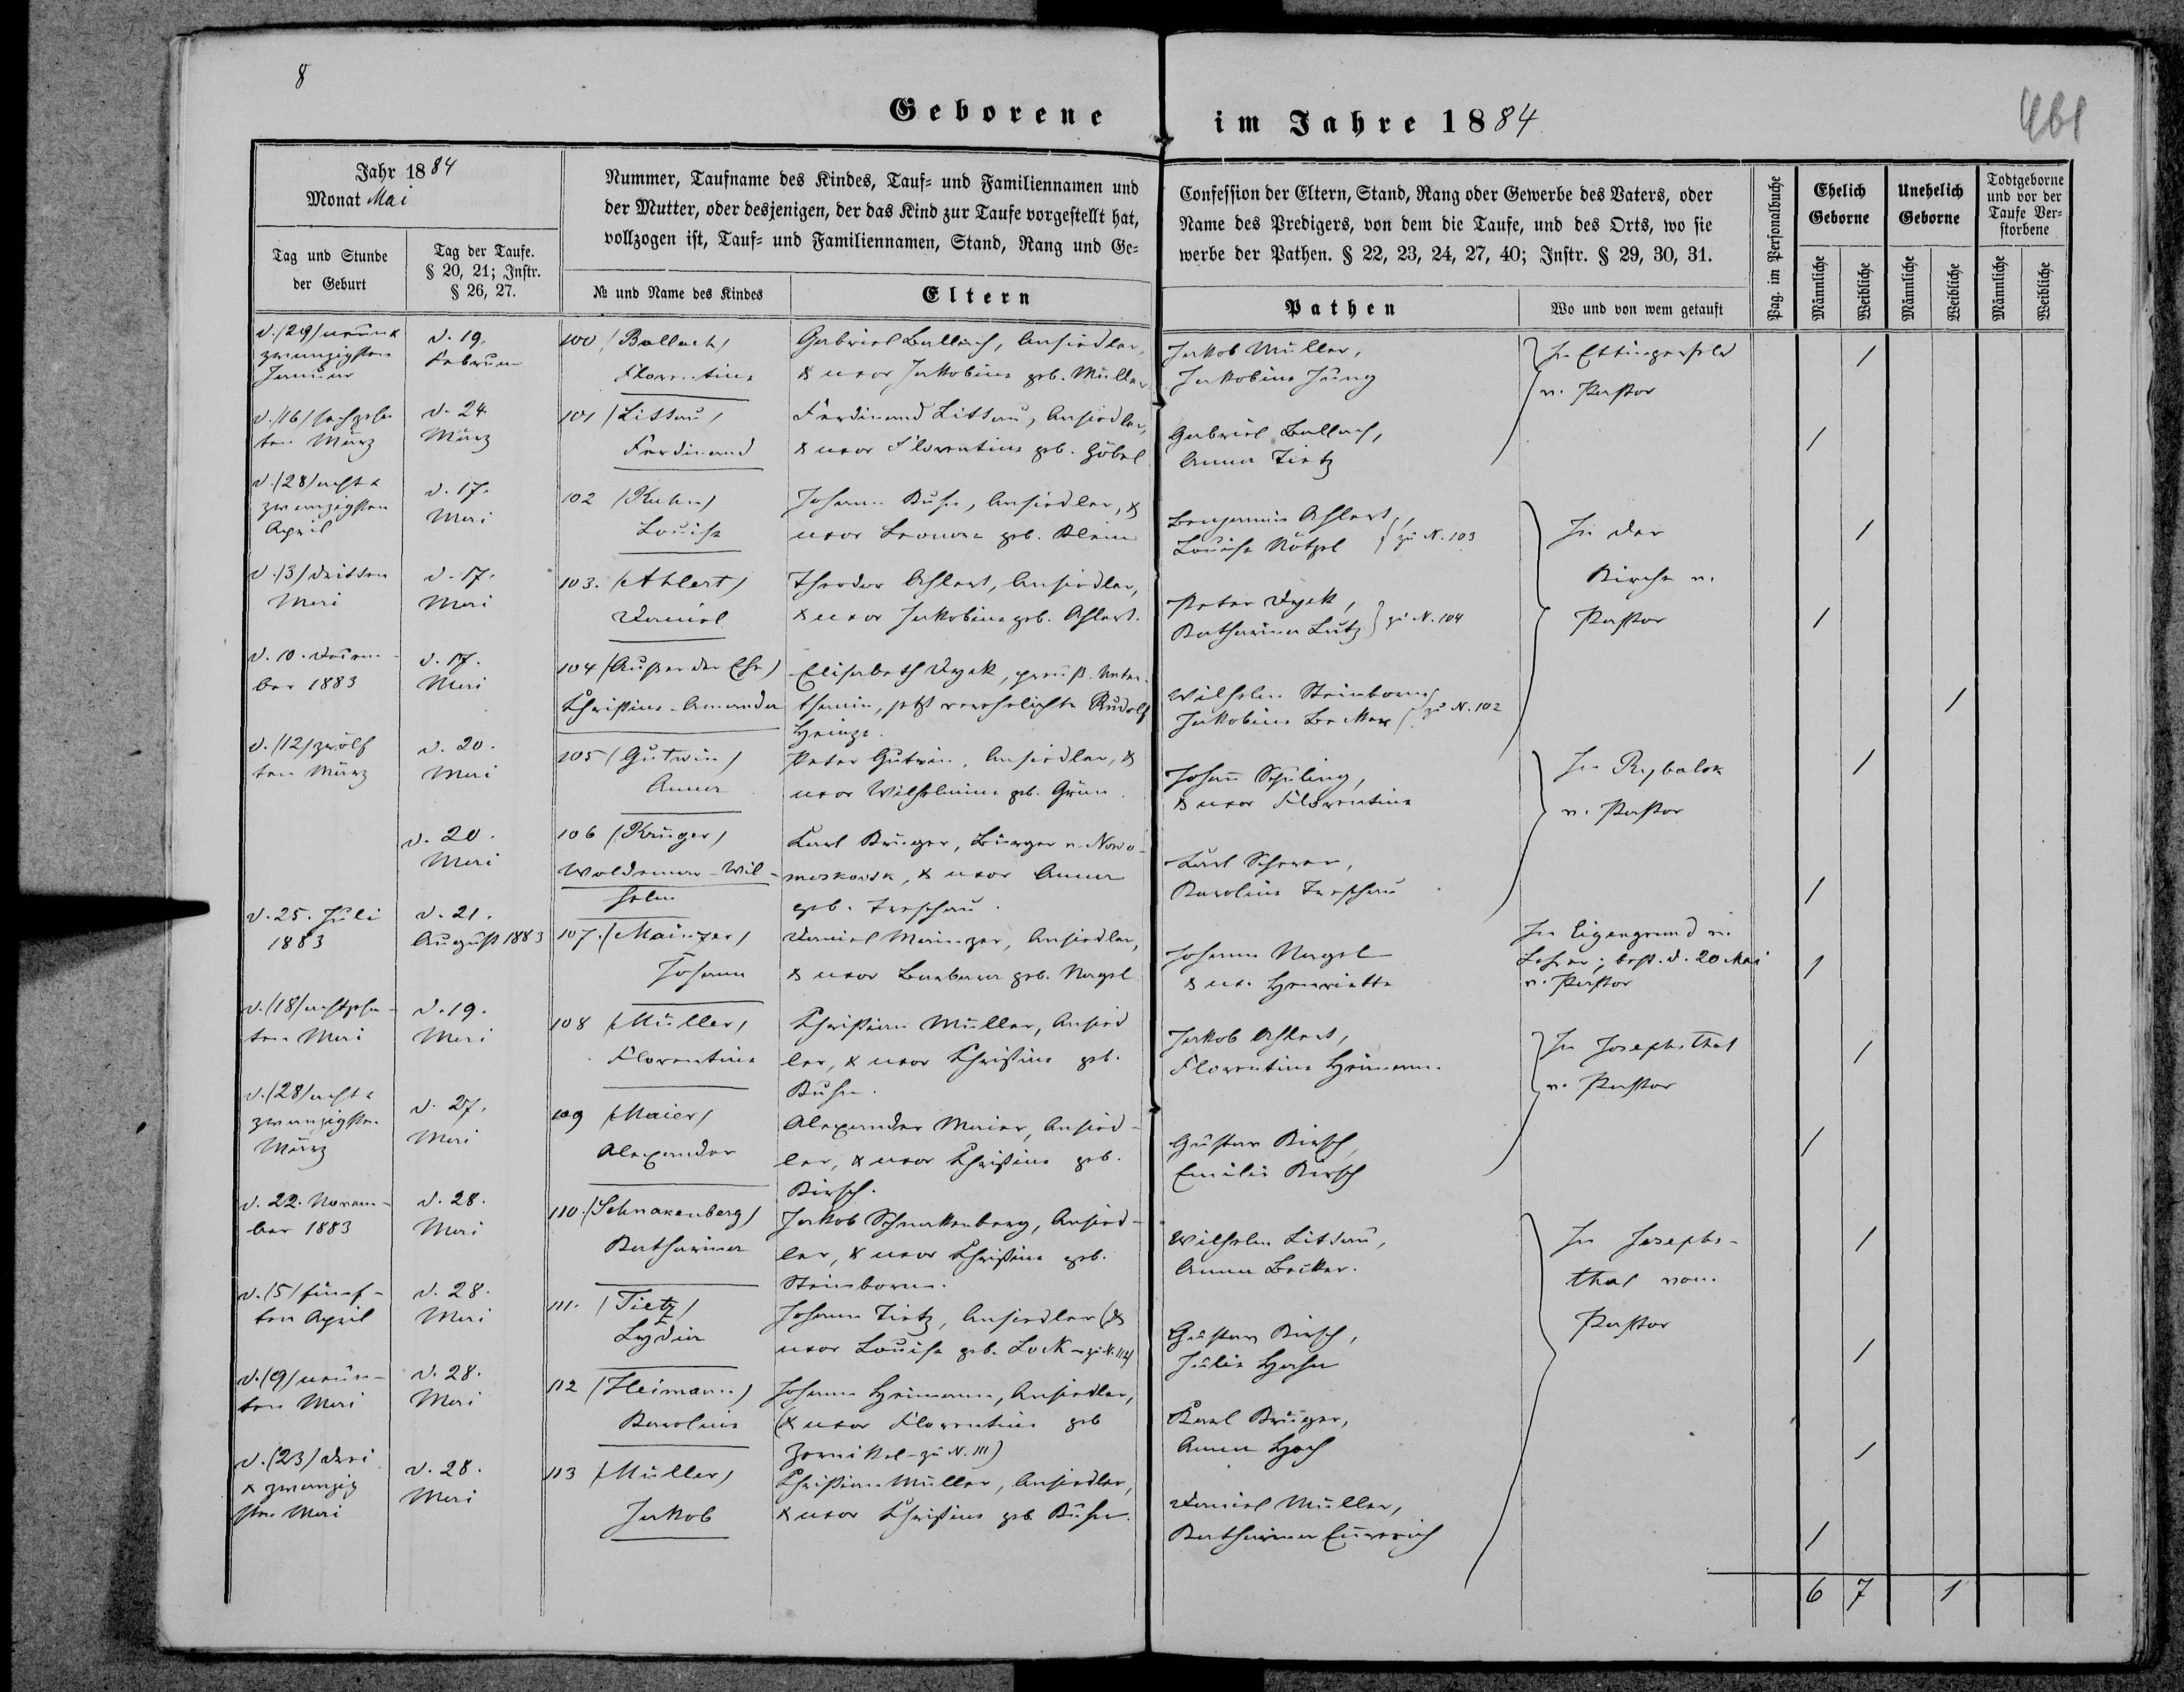 8
Geborene im Jahre 1884
461
Jahr 1884
Monat Mai
Tag und Stunde
der Geburt
Tag der Taufe.
§ 20, 21; Instr.
§ 26, 27.
Nummer, Taufname des Kindes, Tauf- und Familiennamen und
der Mutter, oder desjenigen, der das Kind zur Taufe vorgestellt hat,
vollzogen ist, Tauf- und Familiennamen, Stand, Rang und Ge-
№ und Name des Kindes
Eltern
Confession der Eltern, Stand, Rang oder Gewerbe des Vaters, oder
Name des Predigers, von dem die Taufe, und des Orts, wo sie
werbe der Pathen. § 22, 23, 24, 27, 40; Instr. § 29, 30, 31.
Pathen
Wo und von wem getauft
Pag. im Personalbuche
Ehelich
Geborne
Unehelich
Geborne
Todtgeborne
und vor der
Taufe Ver-
storbene
Männliche
Weibliche
Männliche
Weibliche
Männliche
Weibliche
d. (29) neun &
zwanzigsten
Januar
d. 19.
Februar
100 (Ballach)
Florentine
Gabriel Ballach, Ansiedler,
& uxor Jakobine geb. Müller
Jakob Müller,
Jakobine Jung
In Ettingersfeld
v. Pastor
d. (16) sechzehn
ten März
d. 24.
März
101 (Littau)
Ferdinand
Ferdinand Littau, Ansiedler,
& uxor Florentine geb. Göbel
Gabriel Ballach,
Anna Tietz
d. (28) acht &
zwanzigsten
April
d. 17.
Mai
102 (Kuhn)
Louise
Johann Kuhn, Ansiedler, &
uxor Leonore geb. Klein
Benjamin Ahlert,
Louise Nötzel } zu N. 103
In der
Kirche v.
Pastor
d. (3) dritten
Mai
d. 17.
Mai
103. (Ahlert)
Daniel
Theodor Ahlert, Ansiedler,
& uxor Jakobine geb. Ahlert.
Peter Dyck,
Katharina Lutz } zu N. 104
d. 10. Decem-
ber 1883
d. 17.
Mai
104 (Außer der Ehe)
Christine-Amanda
Elisabeth Dyck, preuß. Unter-
thanin, jetzt verehelichte Rudolf
Heinze.
Wilhelm Steinborn,
Jakobine Becker } zu N. 102
d. (12) zwölf
ten März
d. 20.
Mai
105 (Gutwin)
Anna
Peter Gutwin, Ansiedler, &
uxor Wilhelmine geb. Grün.
Johann Schüling,
& uxor Florentine
In Rybalsk
v. Pastor
d. 20.
Mai
106 (Krüger)
Woldemar-Wil-
helm
Karl Krüger, Bürger v. Nowo-
moskowsk, & uxor Anna
geb. Treschau.
Karl Scherer,
Karoline Treschau
d. 25. Juli
1883
d. 21.
August 1883
107. (Mainzer)
Johann
Daniel Mainzer, Ansiedler,
& uxor Barbara geb. Nagel
Johann Nagel
& ux. Henriette
In Eigengrund v.
Lehrer; best. d. 20 Mai
v. Pastor
d. (18) achtzehn-
ten Mai
d. 19.
Mai
108 (Müller)
Florentine
Christian Müller, Ansied
ler, & uxor Christine geb.
Kuhn.
Jakob Ahlert,
Florentine Heimann.
In Josephsthal
v. Pastor
d. (28) acht &
zwanzigsten
März
d. 27.
Mai
109 (Maier)
Alexander
Alexander Maier, Ansied-
ler, & uxor Christine geb.
Kirsch.
Gustav Kirsch,
Emilie Kirsch
d. 22. Novem-
ber 1883
d. 28.
Mai
110. (Schnakenberg)
Katharina
Jakob Schnakenberg, Ansied-
ler, & uxor Christine geb.
Steinborn.
Wilhelm Littau,
Anna Becker.
In Josephs-
thal vom
Pastor
d. (5) fünf-
ten April
d. 28.
Mai
111. (Tietz)
Lydia
Johann Tietz, Ansiedler (&
uxor Louise geb. Lock - zu N. 112)
Gustav Kirsch,
Julie Hahn
d. (9) neun-
ten Mai
d. 28.
Mai
112 (Heimann)
Karoline
Johann Heimann, Ansiedler,
(& uxor Florentine geb
Zernikel - zu N. 111)
Karl Krüger,
Anna Hoch
d. (23) drei
& zwanzig
sten Mai
d. 28.
Mai
113 (Müller)
Jakob
Christian Müller, Ansiedler,
& uxor Christine geb. Kuhn.
Daniel Müller,
Katharina Emmerich
6 7 1